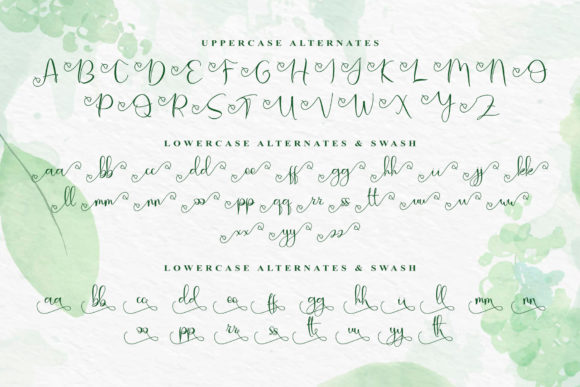 UPPERCASE ALTERNATES
A B C D E F G H I J K L M N O
P Q R S T U V W X Y Z
LOWERCASE ALTERNATES & SWASH
aa bb cc dd ee ff gg hh ii jj kk
ll mm nn oo pp qq rr ss tt uu vv ww
xx yy zz
LOWERCASE ALTERNATES & SWASH
aa bb cc dd ee ff gg hh ii ll mm nn
oo pp rr ss tt uu yy th